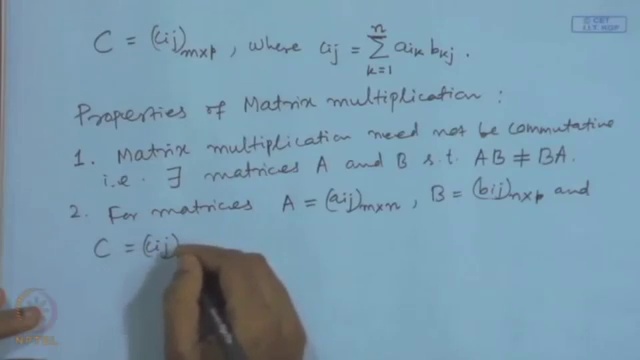 © CET
I.I.T. KGP
C = (cij)m×p, where cij = Σ_{k=1}^{n} aik bkj.
Properties of Matrix multiplication :
1. Matrix multiplication need not be commutative
i.e. ∃ matrices A and B s.t. AB ≠ BA.
2. For matrices A = (aij)m×n, B = (bij)n×p and
C = (cij)
NPTEL